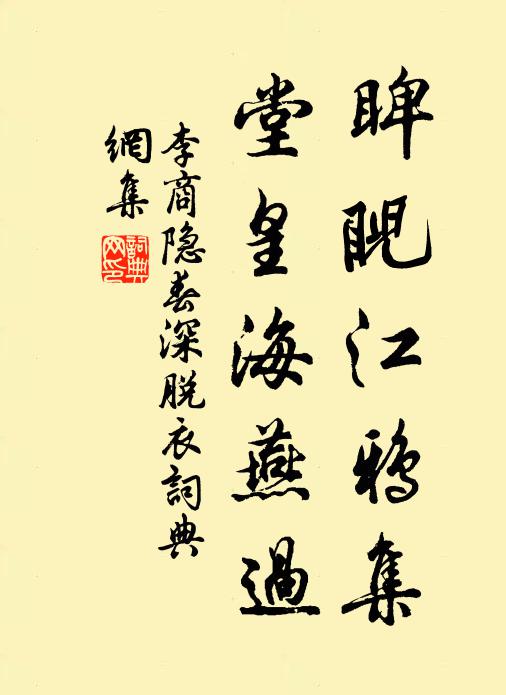 睥睨江鴉集
堂皇海燕過
李商隐春深脱衣詞典
網集
詞典
网印